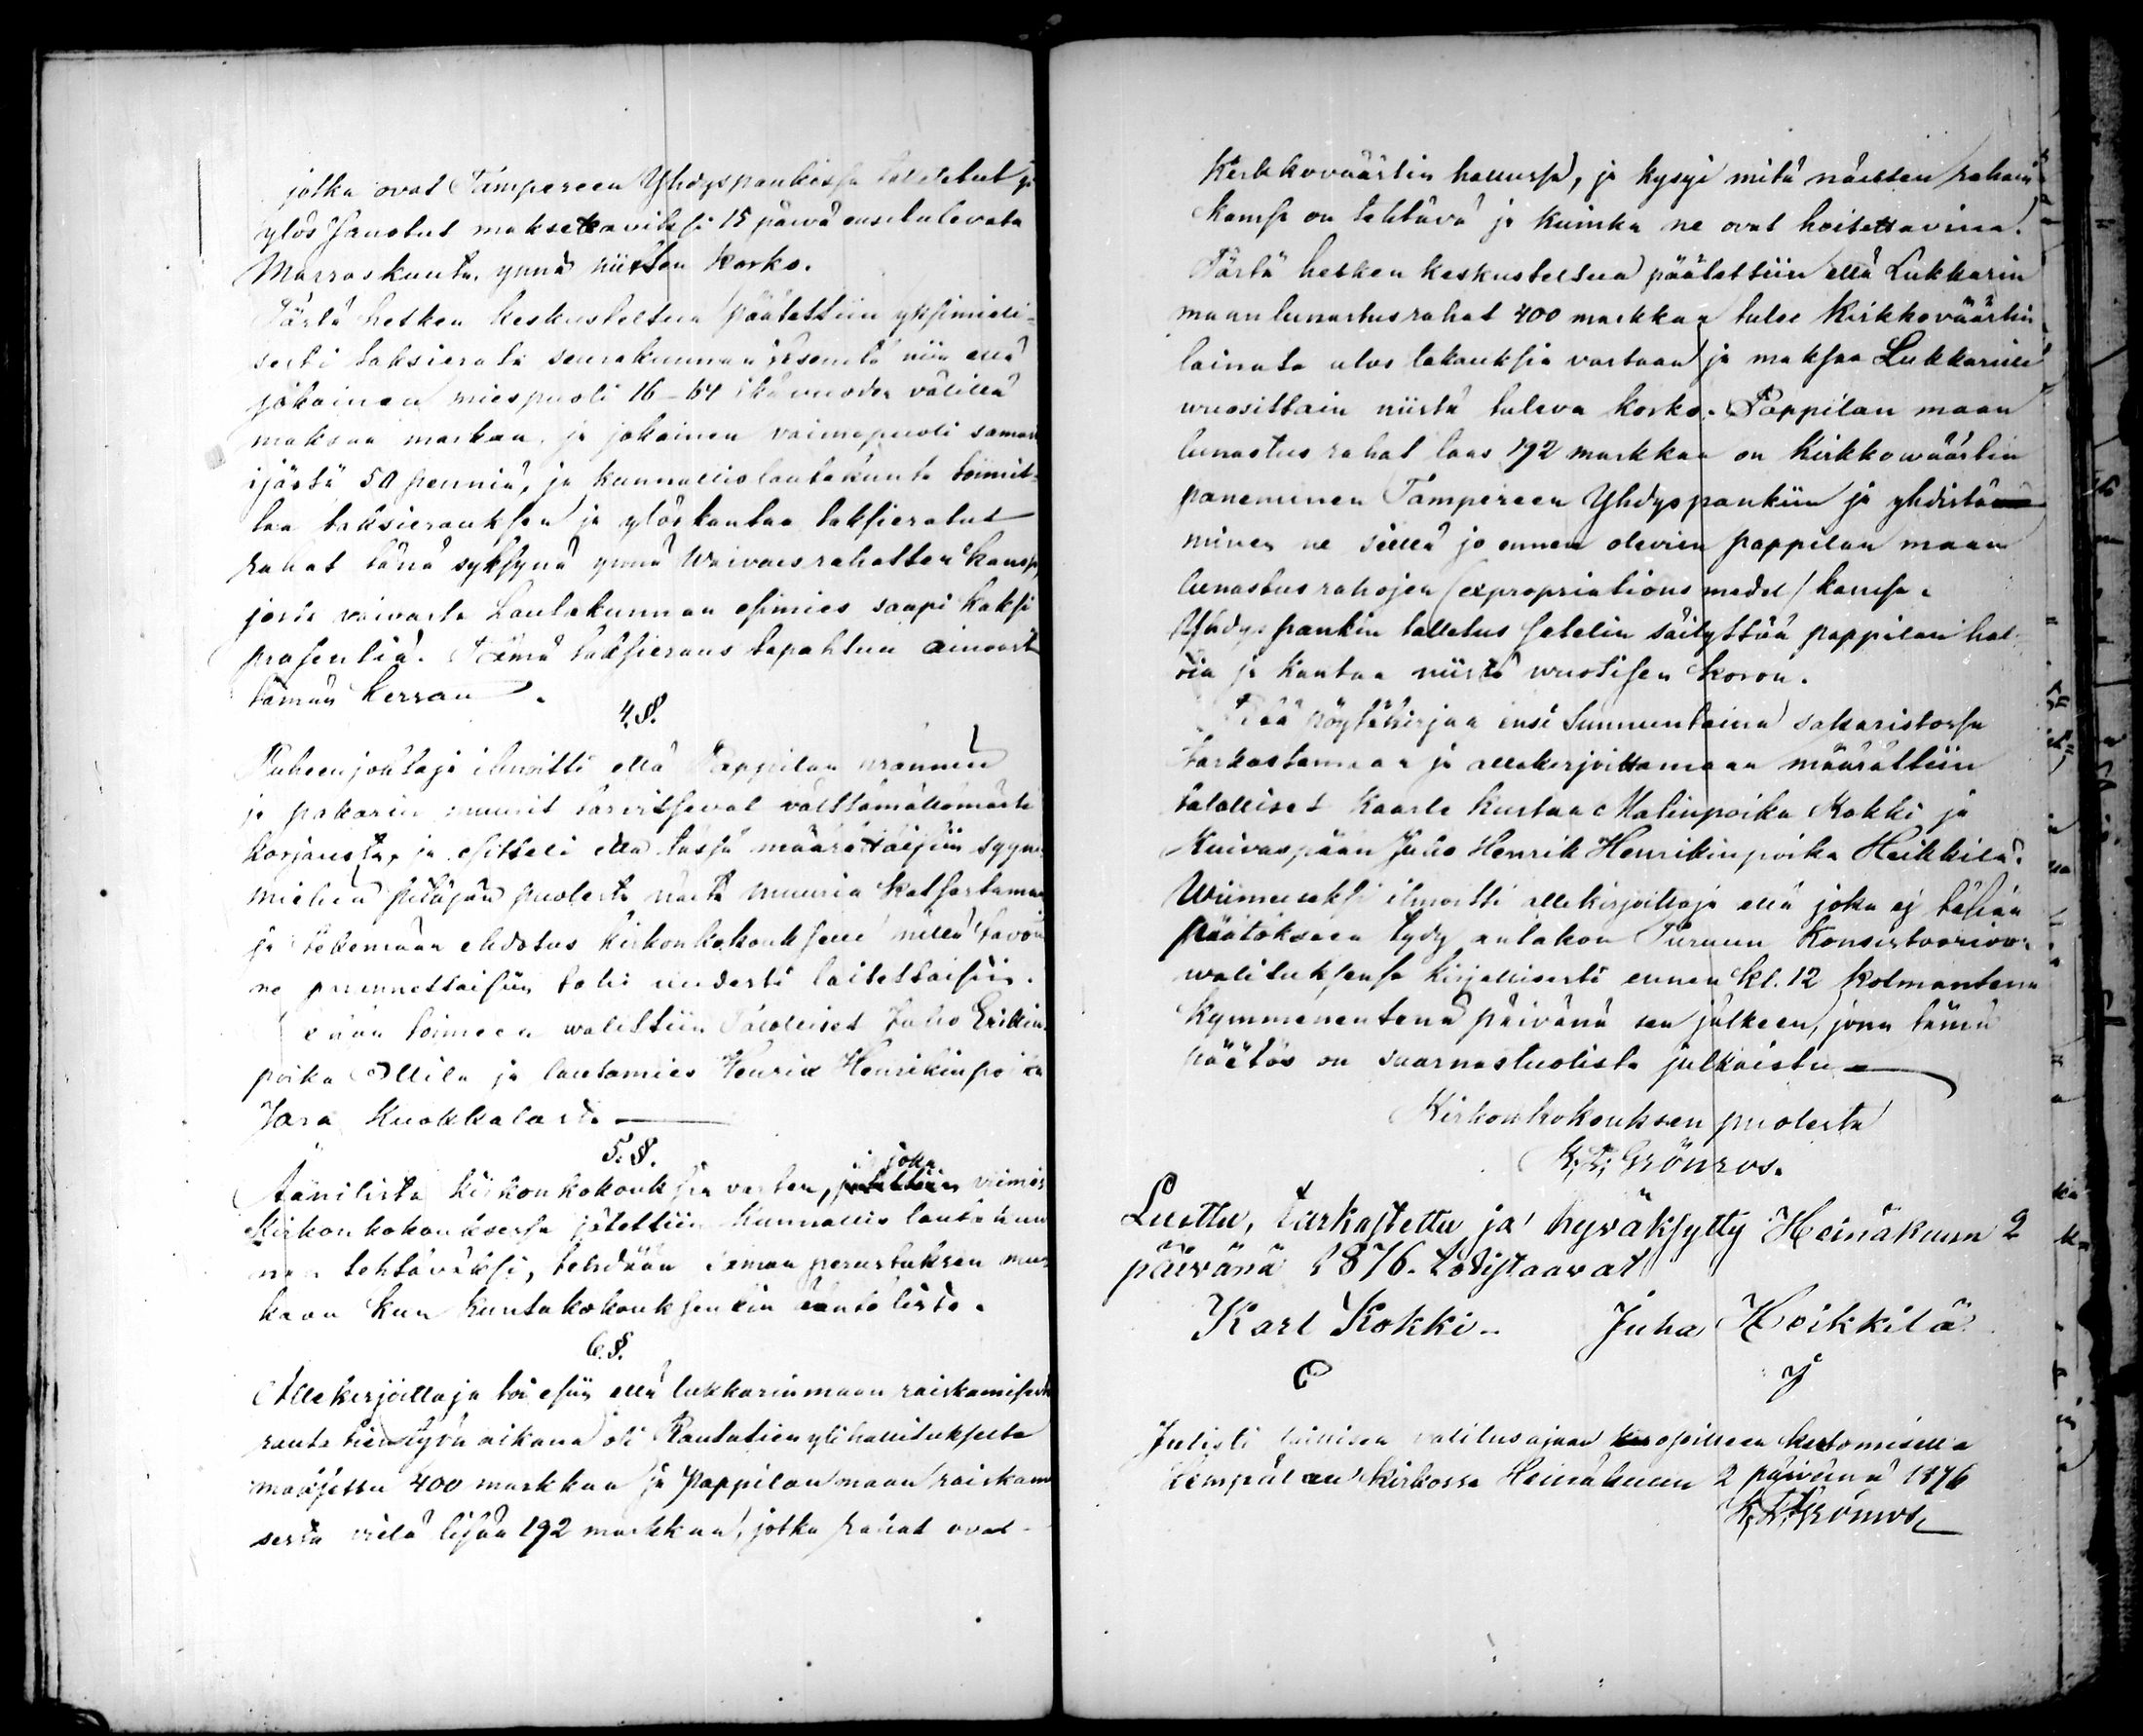 jotka ovat Tampereen Yhdyspankissa talletetut ja
ylös sanotut maksettaviksi 15 päivä ensitulevata
Marraskuuta ynnä niitten korko.
Tästä hetken keskusteltua päätettiin yksimieli-
sesti taksierata seurakunnan jäsenitä niin että
jokainen miespuoli 16-64 ikävuoden välillä
maksaa markan ja jokainen vaimopuoli samasta
ijästä 50 penniä, ja kunnallislautakunta toimit-
taa taksierauksen ja ylöskantaa taksieratut
rahat tänä syksynä ynnä Waivaisrahatten kanssa,
josta vaivasta Lautakunnan esimies saapi kaksi
prosenttiä. Tämä taksieraus tapahtuu ainoasti
tämän kerran.
4.§.
Puheenjohtaja ilmoitti että Pappilan
ja pakarin muurit tarvitsevat välttämättömästi
korjausta, ja esitteli että tässä määrättäisiin syyni
miehiä pitäjän puolesta näitä muuria katsastamaan
ja tekemään ehdotus kirkonkokoukselle millä tavoin
ne parannettaisiin tahi uudesti laitettaisiin.
toimeen walittiin Talolliset Juho Erikin
poika Ollila ja lautamies Henrik Henrikinpoika
Jara Kuokkalasta
5.§.
joka
Äänilista kirkonkokouksia varten, viimeis
Kirkonkokouksessa jätettiin Kunnallis lautakun
nan tehtäväksi, tehdään saman perustuksen mu-
kaan kun kuntakokouksenkin äänilista.
6.§.
Allekirjoittaja toi esiin että lukkarinmaan raiskamisesta
rautatientyön aikana oli Rautatien ylihallitukselta
maksettu 400 markkaa ja Pappilan maan raiskami
sesta vielä lisää 192 markkaa, jotka rahat ovat
Kirkkoväärtin hallussa, ja kysyi mitä näitten rahain
kanssa on tehtävä ja kuinka ne ovat hoitettavina.
Tästä hetken keskusteltua päätettiin että Lukkarin
maan lunastusrahat 400 markkaa tulee Kirkkoväärtin
lainata ulos takauksia vastaan ja maksaa Lukkarille
wuosittain niistä tuleva korko. Pappilan maan
lunastus rahat taas 192 markkaa on Kirkkowäärtin
paneminen Tampereen Yhdyspankiin ja yhdistä
minen ne siellä jo ennen olevien pappilan maan
lunastusrahojen (expropriations medel) kanssa.
Yhdyspankin talletus setelin säilyttää pappilan hal-
tia ja kantaa niistä wuotisen koron.
Tätä pöytäkirjaa ensi Sunnuntaina sakaristossa
tarkastamaan ja allekirjoittamaan määrättiin
talolliset Kaarle Kustaa Matinpoika Kokki ja
Kuivaspään Juho Henrik Henrikinpoika Heikkilä.
Wiimeiseksi ilmoitti allekirjoittaja että joka ej tähän
päätökseen tydy antakon Turuun Konsistoorioon
walituksensa kirjallisesti ennen kl. 12 kolmantena
kymmenentenä päivänä sen jälkeen, jona tämä
päätös on saarnastuolista julkaistu
Kirkonkokouksen puolesta
K. F. Grönros.
Luettu, tarkastettu ja hyväksytty Heinäkuun 2
päivänä 1876. todistaavat
Karl Kokki. Juha Heikkilä
Julisti laillisen valitusajan opilleen kertomisella
Lempäälän kirkossa Heinäkuun 2 päivänä 1876
K. F. Grönros